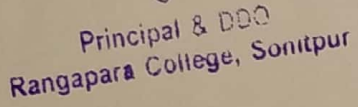 Principal & DDO
Rangapara College, Sonitpur